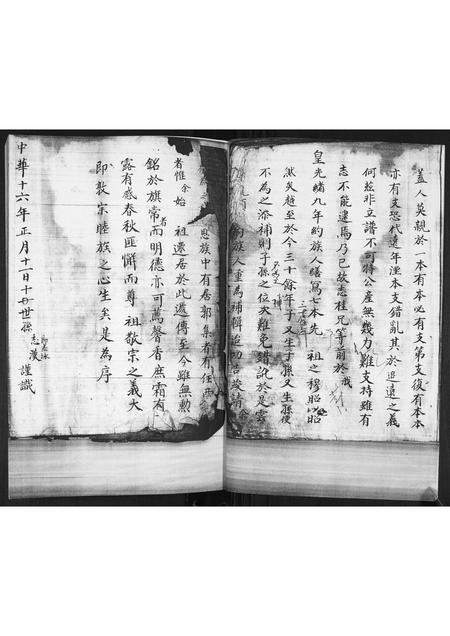 蓋人莫親於一本有本必有支第支復有本本
亦有支恐代遠年湮本支錯亂其於追遠之義
何茲非立譜不可將公產無幾力難支持雖有
志不能逮焉乃已故志桂兄等前於
皇光緒九年約族人繕寫七本先祖之穆昭
然矣越至於今三十餘年子又生子孫又生孫使
不為之添補則子孫之位次難免錯訛於是雲
約族人重為補輯追功告竣請
思族中有居郭集者有任
者惟余始祖遷居於此遞傳至今雖無勳
銘於旗常而明德亦可薦馨香庶霜有
露有感春秋匪懈而尊祖敬宗之義大
即敦宗睦族之心生矣是為序
中華十六年正月十一日十世孫志漢謹識